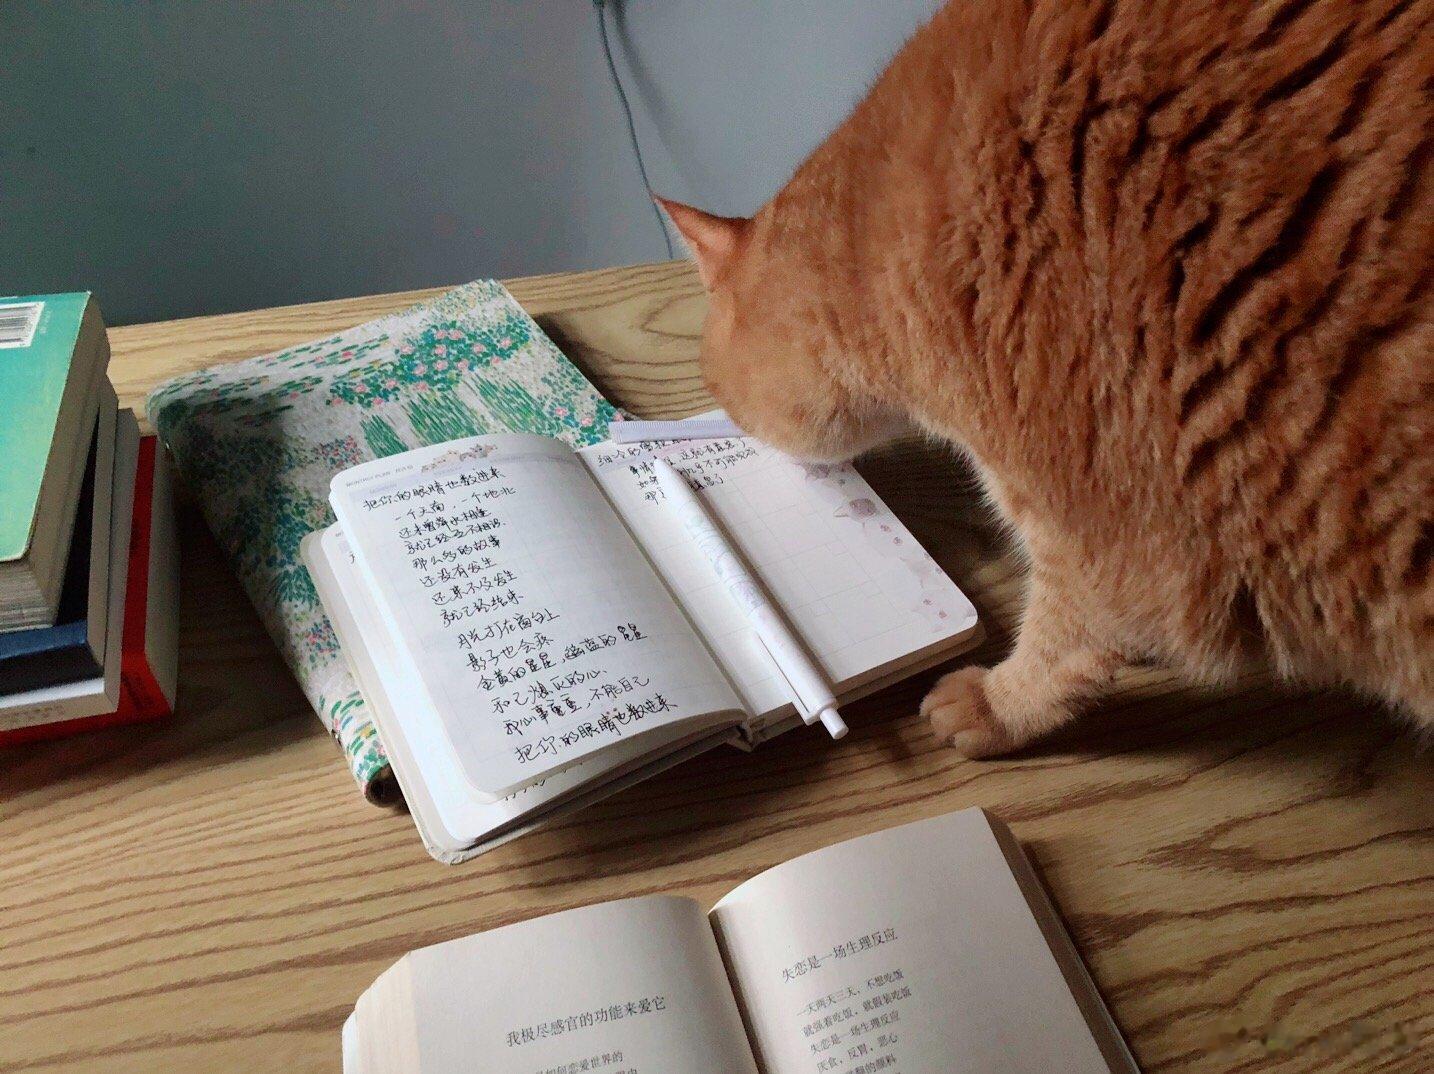 MONTHLY PLAN
把你的眼睛也数进来
一个天南,一个地北
还未曾萍水相逢
就已经互不相识
那么多的故事
还没有发生
还来不及发生
就已经结束
月光打在窗台上
影子也会疼
金黄的星星,幽蓝的星星
和已爆灰的心
我心事重重,不能自己
把你的眼睛也数进来
这就有意思了
不可能
如
那
我极尽感官的功能来爱它
如何恋爱世界的
失恋是一场生理反应
一天两天三天,不想吃饭
就强着吃饭,就假装吃饭
失恋是一场生理反应
厌食,反胃,恶心
的颜料